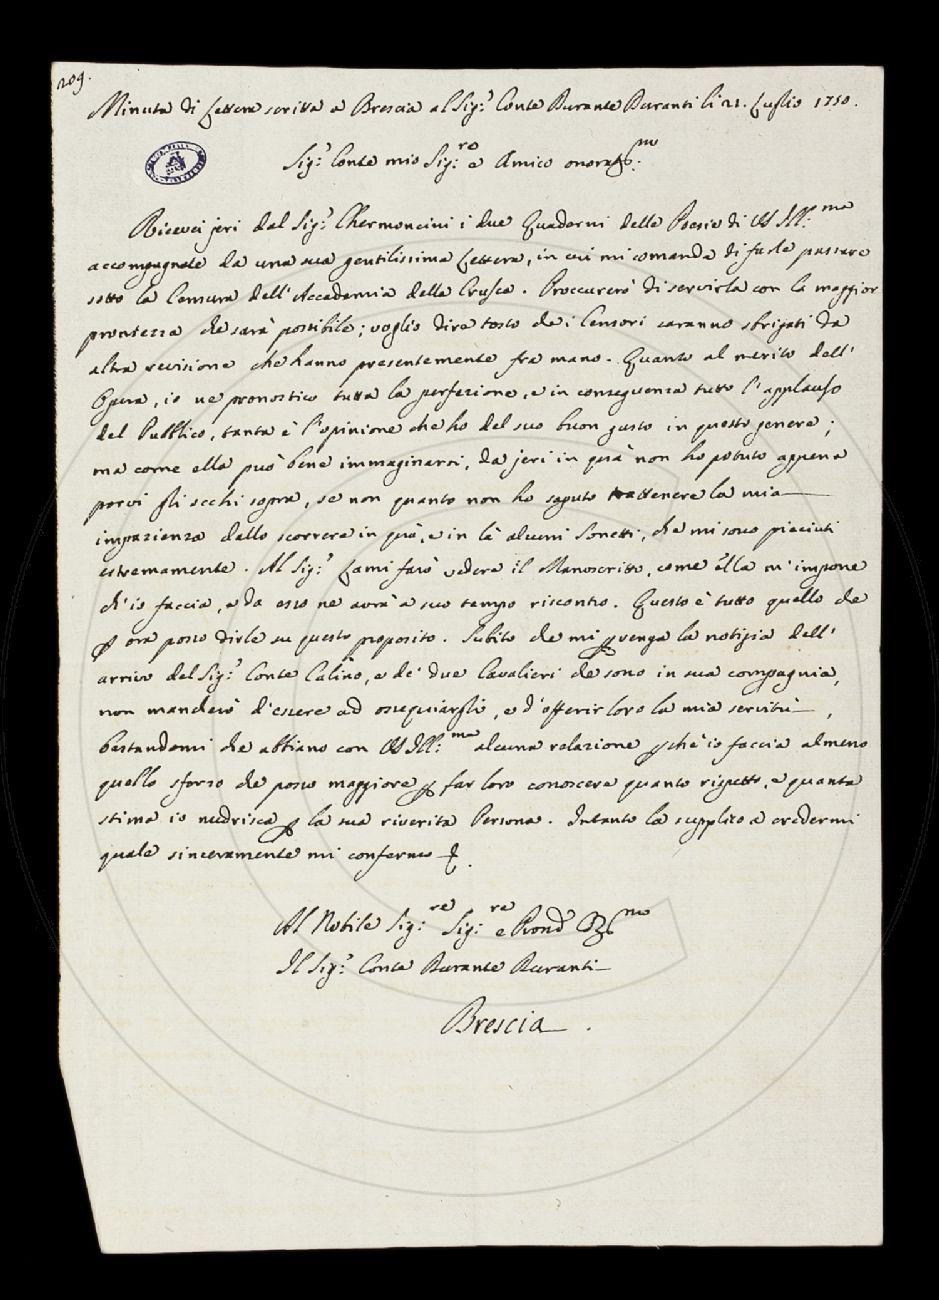 209.
Minuta di Lettera scritta a Brescia al Sig:r Conte Durante Duranti li 21. Luglio 1750.
Sig:r Conte mio Sig:re e Amico onorat:mo
Ricevei jeri dal Sig:r Chermoncini i due Quaderni delle Poesie di VS Ill:ma
accompagnate da una sua gentilissima Lettera, in cui mi comanda di farle passare
sotto la Censura dell'Accademia della Crusca. Proccurerò di servirla con la maggior
prontezza che sarà possibile; voglio dire tosto che i Censori saranno sbrigati da
altra revisione che hanno presentemente fra mano. Quanto al merito dell'
Opera, io ne pronostico tutta la perfezione, e in conseguenza tutto l'applauso
del Pubblico, tanta è l'opinione che ho del suo buon gusto in questo genere;
ma come ella può bene immaginarsi, da jeri in quà non ho potuto appena
porvi gli occhi sopra, se non quanto non ho saputo trattenere la mia
impazienza dallo scorrere in quà, e in là alcuni Sonetti, che mi sono piaciuti
estremamente. Al Sig:r Lami farò vedere il Manoscritto, come ella m'impone
ch'io faccia, e da esso ne avrà a suo tempo riscontro. Questo è tutto quello che
p ora posso dirle su questo proposito. Subito che mi pvenga la notizia dell'
arrivo del Sig:r Conte Calino, e de' due Cavalieri che sono in sua compagnia,
non mancherò d'essere ad ossequiargli, e d'offerir loro la mia servitù,
bastandomi che abbiano con VS Ill:ma alcuna relazione pchè io faccia almeno
quello sforzo che posso maggiore p far loro conoscere quanto rispetto, e quanta
stima io nudrisca p la sua riverita Persona. Intanto la supplico a credermi
quale sinceramente mi confermo
Al Nobile Sig:re Sig:re e Pron
Il Sig:r Conte Durante Duranti
Brescia.